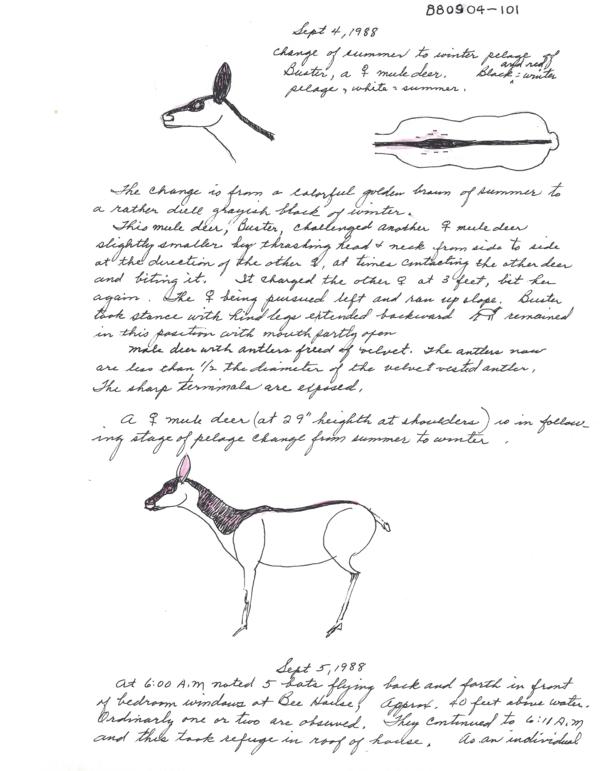 880904-101
Sept 4, 1988
Change of summer to winter pelage of
Buster, a ♀ mule deer. Black and red = winter
pelage, white = summer.
The change is from a colorful golden brown of summer to
a rather dull grayish black of winter.
This mule deer, Buster, challenged another ♀ mule deer
slightly smaller by thrashing head & neck from side to side
at the direction of the other ♀, at times contacting the other deer
and biting it. It charged the other ♀ at 3 feet, bit her
again. The ♀ being pursued left and ran up slope. Buster
took stance with hind legs extended backward remained
in this position with mouth partly open
Male deer with antlers freed of velvet. The antlers now
are less than 1/2 the diameter of the velvet vested antler.
The sharp terminals are exposed.
A ♀ mule deer (at 29" heighth at shoulders) is in follow-
ing stage of pelage change from summer to winter.
Sept 5, 1988
At 6:00 A.M. noted 5 bats flying back and forth in front
of bedroom windows at Bee House, Approx. 40 feet above water.
Ordinarly one or two are observed. They continued to 6:11 A.M
and thus took refuge in roof of house. As an individual